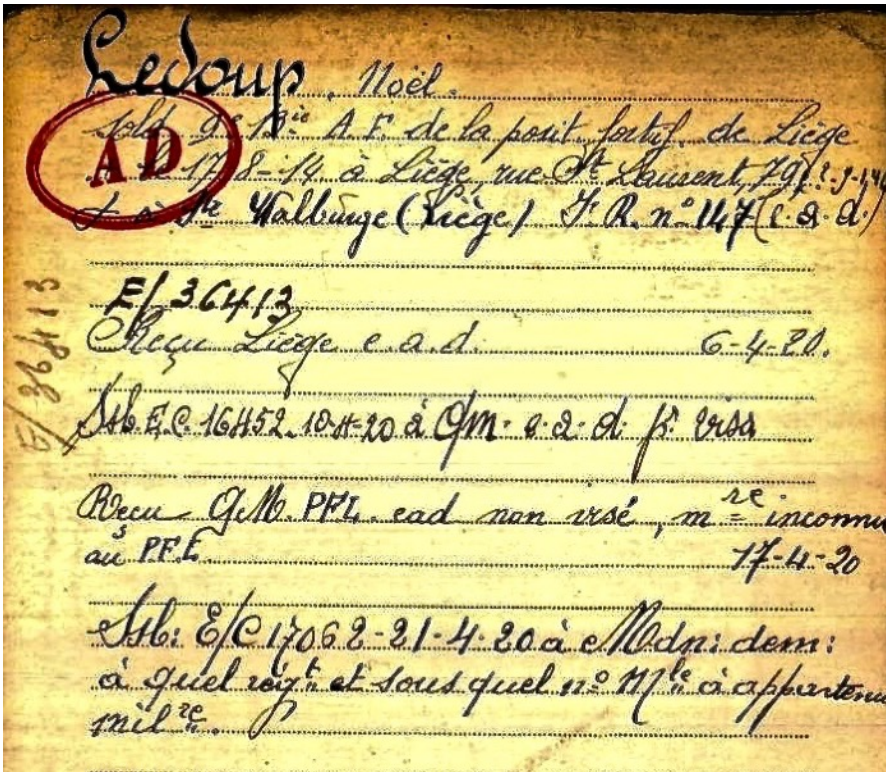 Ledoup, Noël.
sold. 9e Bie A.F. de la posit. fortif. de Liège
AD
le 17-8-14 à Liège, rue St Laurent, 79
+ à Ste Walburge (Liège) F.R. n° 147 (e.a.d.)
E/36413
E/36413
Reçu Liège e.a.d. 6-4-20.
Ssb. E.C. 16452-10-4-20 à QM. e.a.d. pr visa
Recu Q.M. PFL. ead non visé, mre inconnu
au PFL. 17-4-20
Ssb: E/C 17062-21-4-20 à Mdn: dem:
à quel régt et sous quel n° Mle a appartenu
milre.